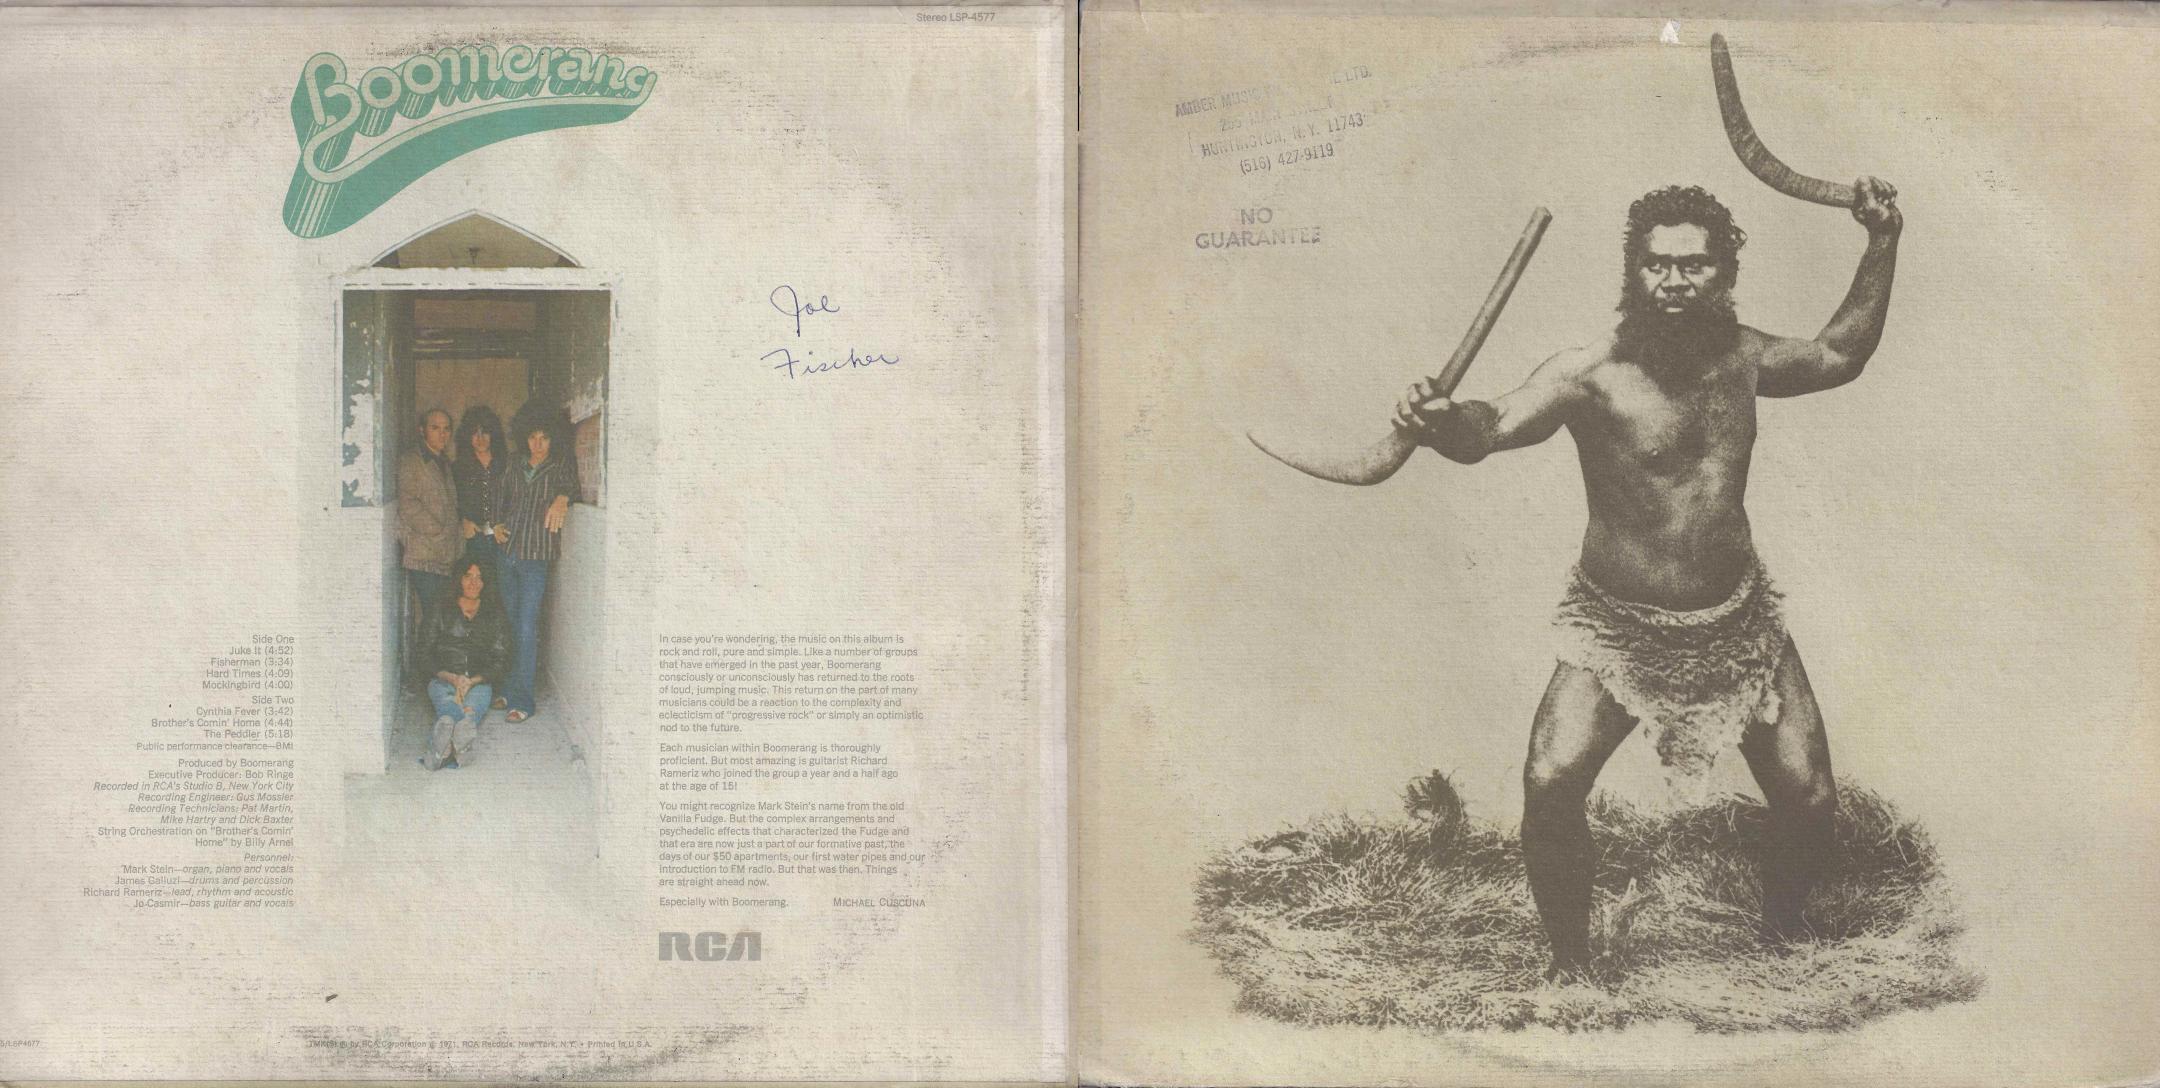 Stereo LSP-4577
Boomerang
Joe
Fischer
Side One
Juke It (4:52)
Fisherman (3:34)
Hard Times (4:09)
Mockingbird (4:00)
Side Two
Cynthia Fever (3:42)
Brother's Comin' Home (4:44)
The Peddler (5:18)
Public performance clearance—BMI
Produced by Boomerang
Executive Producer: Bob Ringe
Recorded in RCA's Studio B, New York City
Recording Engineer: Gus Mossler
Recording Technicians: Pat Martin,
Mike Hartry and Dick Baxter
String Orchestration on "Brother's Comin'
Home" by Billy Arnel
Personnel:
Mark Stein—organ, piano and vocals
James Galluzi—drums and percussion
Richard Rameriz—lead, rhythm and acoustic
Jo Casmir—bass guitar and vocals
In case you're wondering, the music on this album is
rock and roll, pure and simple. Like a number of groups
that have emerged in the past year, Boomerang
consciously or unconsciously has returned to the roots
of loud, jumping music. This return on the part of many
musicians could be a reaction to the complexity and
eclecticism of "progressive rock" or simply an optimistic
nod to the future.
Each musician within Boomerang is thoroughly
proficient. But most amazing is guitarist Richard
Rameriz who joined the group a year and a half ago
at the age of 15!
You might recognize Mark Stein's name from the old
Vanilla Fudge. But the complex arrangements and
psychedelic effects that characterized the Fudge and
that era are now just a part of our formative past, the
days of our $50 apartments, our first water pipes and our
introduction to FM radio. But that was then. Things
are straight ahead now.
Especially with Boomerang. MICHAEL CUSCUNA
RCA
TMK(S) ® by RCA Corporation © 1971, RCA Records, New York, N.Y. • Printed in U.S.A.
LTD.
AMBER MUSIC
HUNTINGTON, N.Y. 11743
(516) 427-9119
NO
GUARANTEE